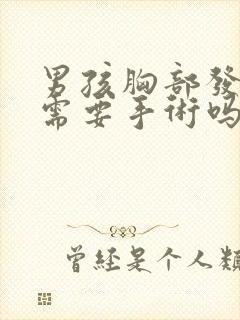 男孩胸部發
需要手術吗
曾经是个人類